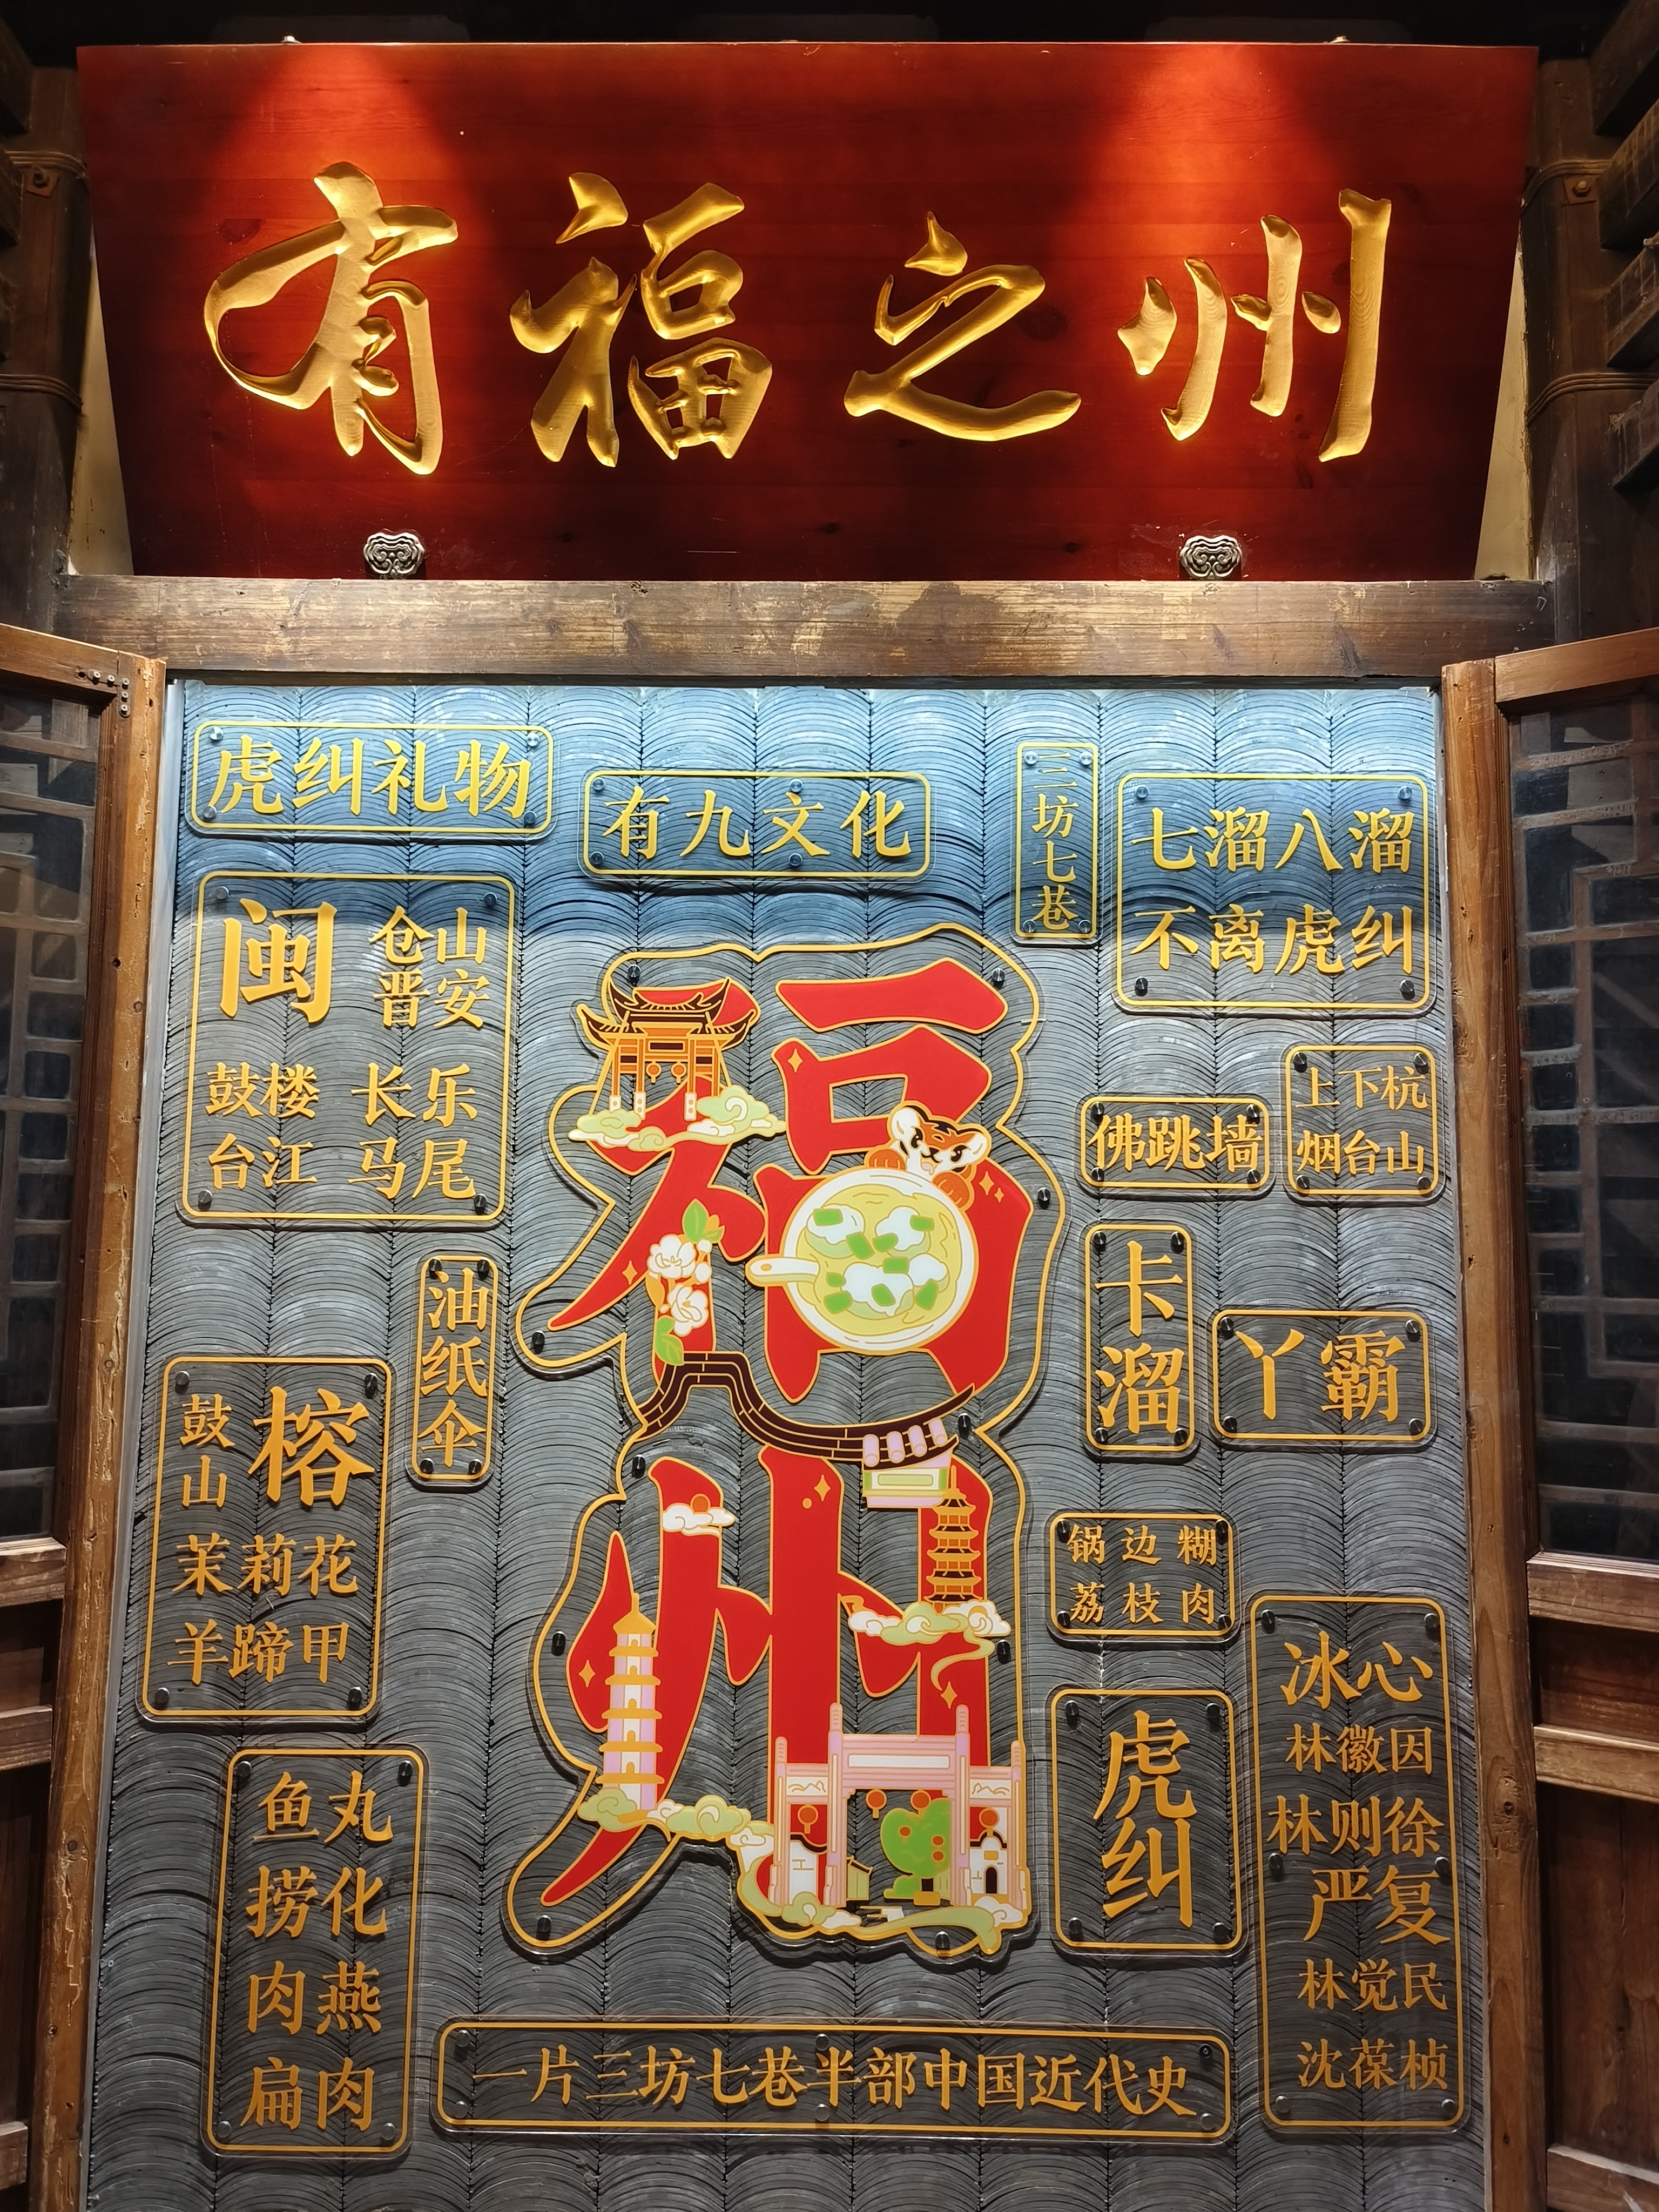 有福之州
虎纠礼物
有九文化
三坊七巷
七溜八溜
不离虎纠
闽
仓山
晋安
鼓楼 长乐
台江 马尾
福州
佛跳墙
上下杭
烟台山
油纸伞
卡溜
丫霸
鼓山
榕
茉莉花
羊蹄甲
锅边糊
荔枝肉
虎纠
冰心
林徽因
林则徐
严复
林觉民
沈葆桢
鱼丸
捞化
肉燕
扁肉
一片三坊七巷半部中国近代史